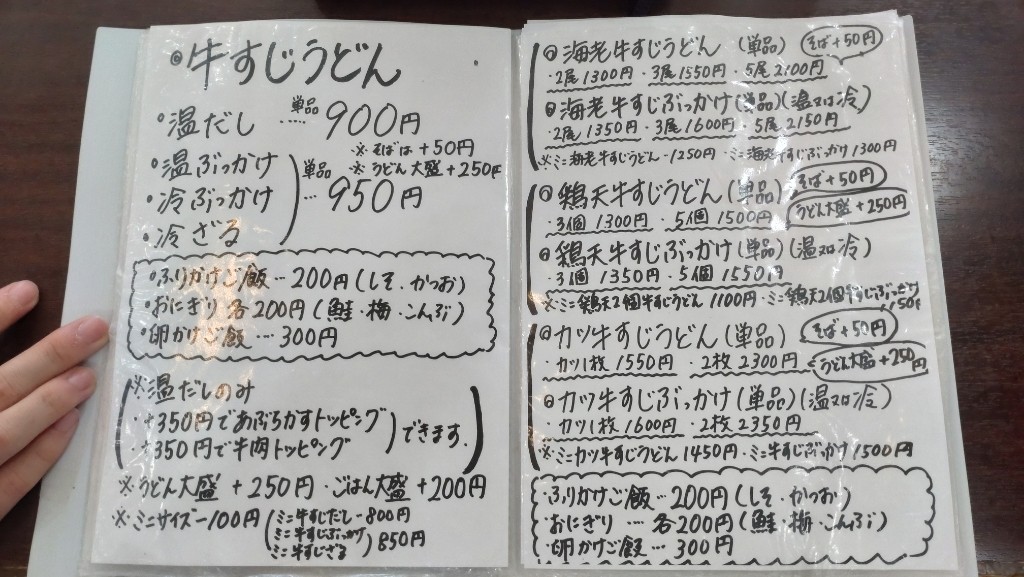 ◎牛すじうどん
・温だし …… 単品 900円
※そばは+50円
※うどん大盛+250円
・温ぶっかけ
・冷ぶっかけ
・冷ざる
単品 … 950円
・ふりかけご飯…200円(しそ・かつお)
・おにぎり 各200円(鮭・梅・こんぶ)
・卵かけご飯…300円
※温だしのみ
・+350円であぶらかすトッピング
・+350円で牛肉トッピング
できます。
※うどん大盛+250円・ごはん大盛+200円
※ミニサイズー100円
ミニ牛すじだし-800円
ミニ牛すじぶっかけ
ミニ牛すじざる
850円
◎海老牛すじうどん (単品) そば+50円
・2尾1300円・3尾1550円・5尾2100円
◎海老牛すじぶっかけ(単品)(温又は冷)
・2尾1350円・3尾1600円・5尾2150円
※ミニ海老牛すじうどん-1250円・ミニ海老牛すじぶっかけ1300円
◎鶏天牛すじうどん(単品) そば+50円
・3個1300円・5個1500円 うどん大盛+250円
◎鶏天牛すじぶっかけ(単品)(温又は冷)
・3個1350円・5個1550円
※ミニ鶏天2個牛すじうどん1100円・ミニ鶏天2個牛すじぶっかけ
1150円
◎カツ牛すじうどん(単品) そば+50円
・カツ1枚1550円・2枚2300円 うどん大盛+250円
◎カツ牛すじぶっかけ(単品)(温又は冷)
・カツ1枚1600円・2枚2350円
※ミニカツ牛すじうどん1450円・ミニ牛すじぶっかけ1500円
・ふりかけご飯…200円(しそ・かつお)
・おにぎり…各200円(鮭・梅・こんぶ)
・卵かけご飯…300円